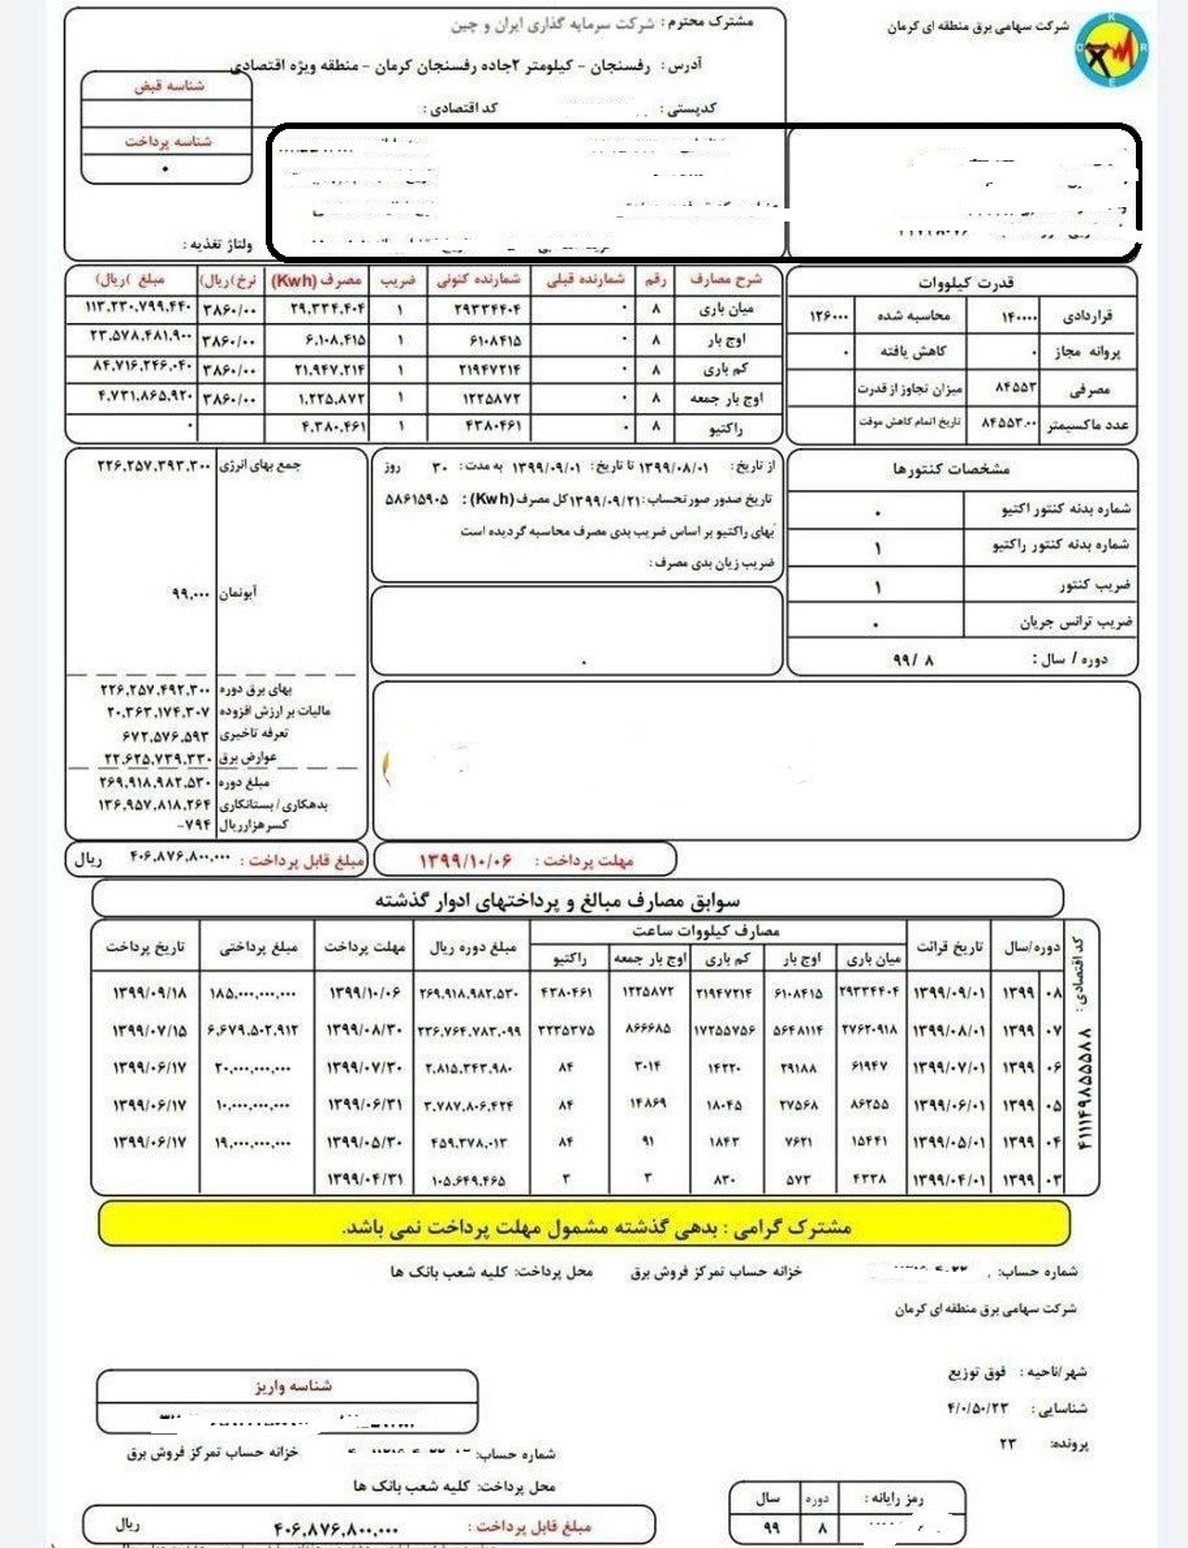 شرکت سهامی برق منطقه ای کرمان
مشترک محترم: شرکت سرمایه گذاری ایران و چین
آدرس: رفسنجان - کیلومتر ۲جاده رفسنجان کرمان - منطقه ویژه اقتصادی
کدپستی: کد اقتصادی:
شناسه قبض
شناسه پرداخت
۰
ولتاژ تغذیه:
قدرت کیلووات
قراردادی ۱۴۰۰۰۰ محاسبه شده ۱۲۶۰۰۰
پروانه مجاز ۰ کاهش یافته ۰
مصرفی ۸۴۵۵۳ میزان تجاوز از قدرت
عدد ماکسیمتر ۸۴۵۵۳.۰۰ تاریخ اتمام کاهش موقت
شرح مصارف رقم شمارنده قبلی شمارنده کنونی ضریب مصرف (Kwh) نرخ(ریال) مبلغ (ریال)
میان باری ۸ ۰ ۲۹۳۳۴۴۰۴ ۱ ۲۹,۳۳۴,۴۰۴ ۳۸۶۰/۰۰ ۱۱۳,۲۳۰,۷۹۹,۴۴۰
اوج بار ۸ ۰ ۶۱۰۸۴۱۵ ۱ ۶,۱۰۸,۴۱۵ ۳۸۶۰/۰۰ ۲۳,۵۷۸,۴۸۱,۹۰۰
کم باری ۸ ۰ ۲۱۹۴۷۲۱۴ ۱ ۲۱,۹۴۷,۲۱۴ ۳۸۶۰/۰۰ ۸۴,۷۱۶,۲۴۶,۰۴۰
اوج بار جمعه ۸ ۰ ۱۲۲۵۸۷۲ ۱ ۱,۲۲۵,۸۷۲ ۳۸۶۰/۰۰ ۴,۷۳۱,۸۶۵,۹۲۰
راکتیو ۸ ۰ ۴۳۸۰۴۶۱ ۱ ۴,۳۸۰,۴۶۱ ۰
مشخصات کنتورها
شماره بدنه کنتور اکتیو ۰
شماره بدنه کنتور راکتیو ۱
ضریب کنتور ۱
ضریب ترانس جریان ۰
دوره / سال: ۸ /۹۹
از تاریخ: ۱۳۹۹/۰۸/۰۱ تا تاریخ: ۱۳۹۹/۰۹/۰۱ به مدت: ۳۰ روز
تاریخ صدور صورتحساب: ۱۳۹۹/۰۹/۲۱ کل مصرف (Kwh): ۵۸۶۱۵۹۰۵
بهای راکتیو بر اساس ضریب بدی مصرف محاسبه گردیده است
ضریب زیان بدی مصرف:
۰
جمع بهای انرژی ۲۲۶,۲۵۷,۳۹۳,۳۰۰
آبونمان ۹۹,۰۰۰
بهای برق دوره ۲۲۶,۲۵۷,۴۹۲,۳۰۰
مالیات بر ارزش افزوده ۲۰,۳۶۳,۱۷۴,۳۰۷
تعرفه تاخیری ۶۷۲,۵۷۶,۵۹۳
عوارض برق ۲۲,۶۲۵,۷۳۹,۳۳۰
مبلغ دوره ۲۶۹,۹۱۸,۹۸۲,۵۳۰
بدهکاری/بستانکاری ۱۳۶,۹۵۷,۸۱۸,۲۶۴
کسرهزارریال ۷۹۴-
مهلت پرداخت: ۱۳۹۹/۱۰/۰۶
مبلغ قابل پرداخت: ۴۰۶,۸۷۶,۸۰۰,۰۰۰ ریال
سوابق مصارف مبالغ و پرداختهای ادوار گذشته
کد اقتصادی: ۴۱۱۱۴۹۸۵۵۵۸۸
مصارف کیلووات ساعت
دوره/سال تاریخ قرائت میان باری اوج بار کم باری اوج بار جمعه راکتیو مبلغ دوره ریال مهلت پرداخت مبلغ پرداختی تاریخ پرداخت
۰۸ ۱۳۹۹ ۱۳۹۹/۰۹/۰۱ ۲۹۳۳۴۴۰۴ ۶۱۰۸۴۱۵ ۲۱۹۴۷۲۱۴ ۱۲۲۵۸۷۲ ۴۳۸۰۴۶۱ ۲۶۹,۹۱۸,۹۸۲,۵۳۰ ۱۳۹۹/۱۰/۰۶ ۱۸۵,۰۰۰,۰۰۰,۰۰۰ ۱۳۹۹/۰۹/۱۸
۰۷ ۱۳۹۹ ۱۳۹۹/۰۸/۰۱ ۲۷۶۲۰۹۱۸ ۵۶۴۸۱۱۴ ۱۷۲۵۵۷۵۶ ۸۶۶۶۸۵ ۲۲۳۵۳۷۵ ۲۳۶,۷۶۴,۷۸۳,۰۹۹ ۱۳۹۹/۰۸/۳۰ ۶,۶۷۹,۵۰۲,۹۱۲ ۱۳۹۹/۰۷/۱۵
۰۶ ۱۳۹۹ ۱۳۹۹/۰۷/۰۱ ۶۱۹۴۷ ۲۹۱۸۸ ۱۴۲۲۰ ۳۰۱۴ ۸۴ ۲,۸۱۵,۳۴۳,۹۸۰ ۱۳۹۹/۰۷/۳۰ ۲۰,۰۰۰,۰۰۰,۰۰۰ ۱۳۹۹/۰۶/۱۷
۰۵ ۱۳۹۹ ۱۳۹۹/۰۶/۰۱ ۸۶۲۵۵ ۲۷۵۶۸ ۱۸۰۴۵ ۱۴۸۶۹ ۸۴ ۳,۷۸۷,۸۰۶,۴۲۴ ۱۳۹۹/۰۶/۳۱ ۱۰,۰۰۰,۰۰۰,۰۰۰ ۱۳۹۹/۰۶/۱۷
۰۴ ۱۳۹۹ ۱۳۹۹/۰۵/۰۱ ۱۵۴۴۱ ۷۶۲۱ ۱۸۴۳ ۹۱ ۸۴ ۴۵۹,۳۷۸,۰۱۳ ۱۳۹۹/۰۵/۳۰ ۱۹,۰۰۰,۰۰۰,۰۰۰ ۱۳۹۹/۰۶/۱۷
۰۳ ۱۳۹۹ ۱۳۹۹/۰۴/۰۱ ۴۳۳۸ ۵۷۳ ۸۳۰ ۳ ۳ ۱۰۵,۶۴۹,۴۶۵ ۱۳۹۹/۰۴/۳۱
مشترک گرامی: بدهی گذشته مشمول مهلت پرداخت نمی باشد.
شماره حساب: خزانه حساب تمرکز فروش برق محل پرداخت: کلیه شعب بانک ها
شرکت سهامی برق منطقه ای کرمان
شهر/ناحیه: فوق توزیع
شناسایی: ۴/۰/۵۰/۲۳
پرونده: ۲۳
شناسه واریز
شماره حساب: خزانه حساب تمرکز فروش برق
محل پرداخت: کلیه شعب بانک ها
رمز رایانه: دوره سال
۸ ۹۹
مبلغ قابل پرداخت: ۴۰۶,۸۷۶,۸۰۰,۰۰۰ ریال